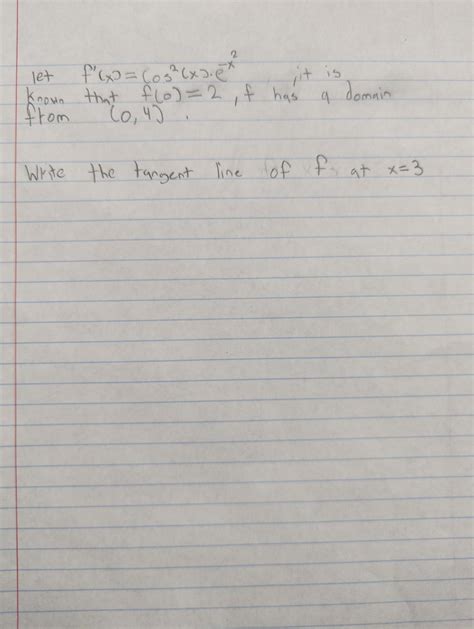 let f'(x) = Cos²(x)·e^-x² , it is
known that f(0) = 2 , f has a domain
from (0,4) .
Write the tangent line of f at x=3